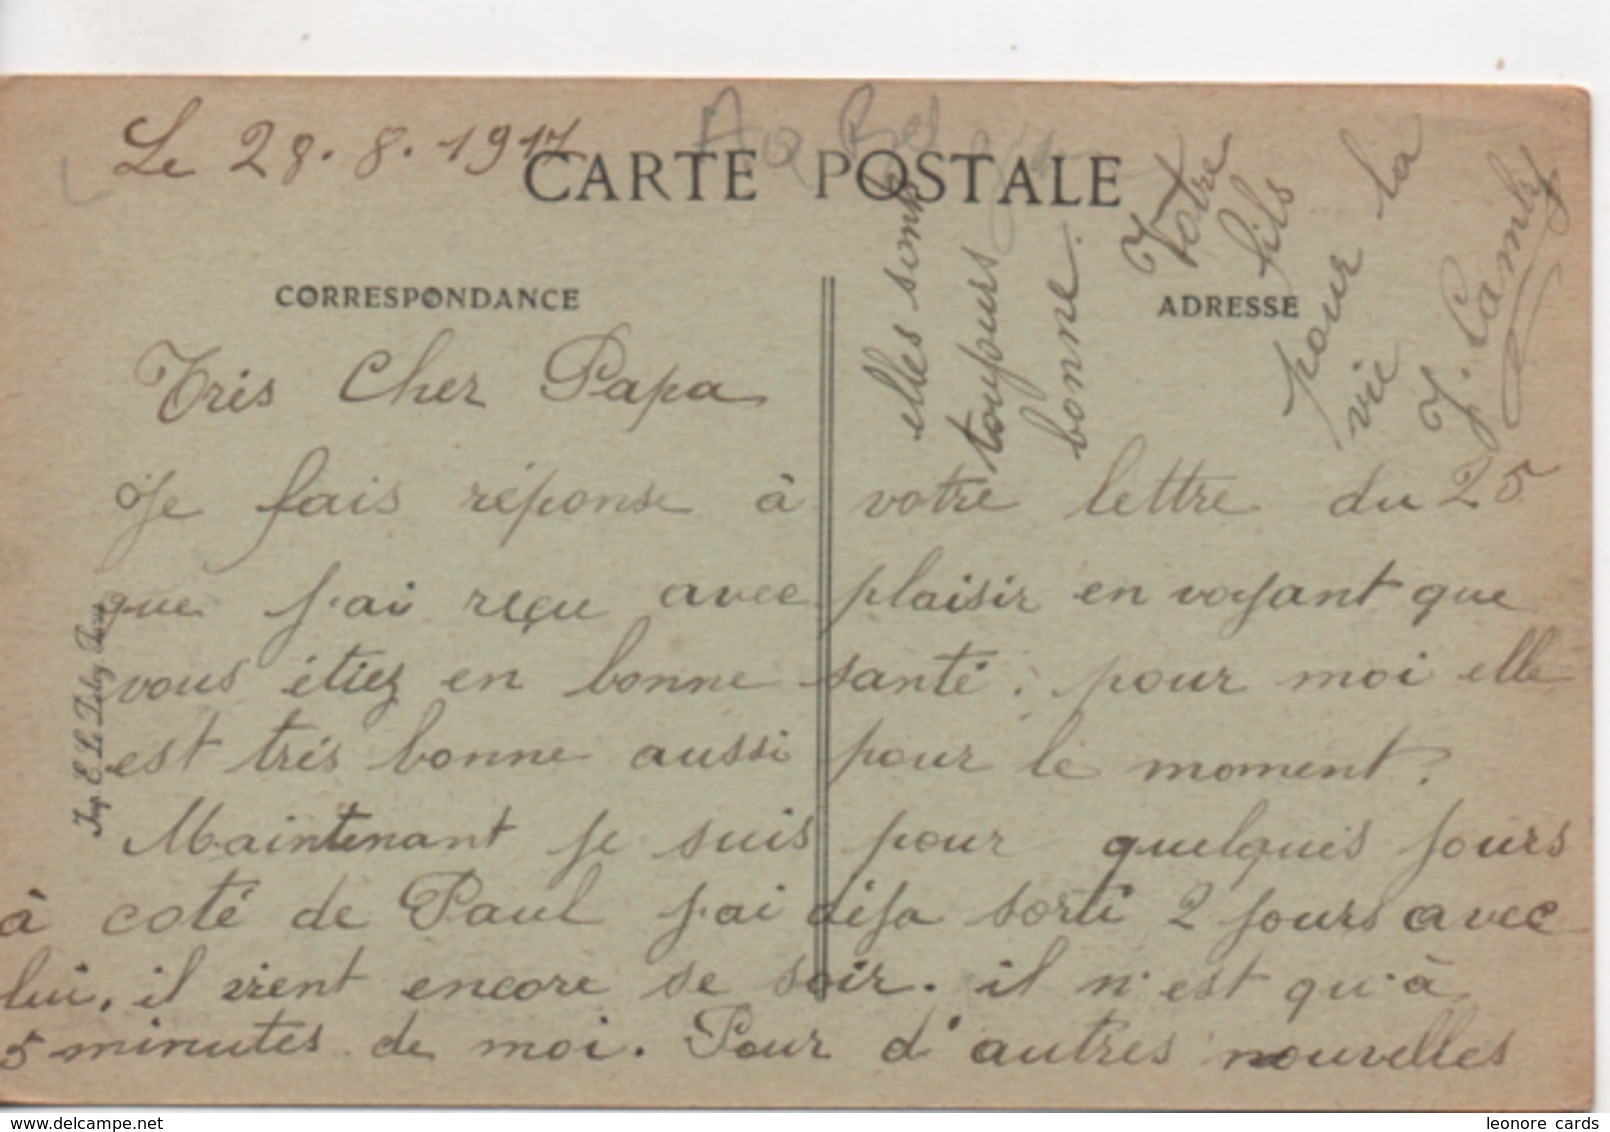 Le 28.8.1917
CARTE POSTALE
CORRESPONDANCE
ADRESSE
Trés Cher Papa
Je fais réponse à votre lettre du 25
que j'ai reçu avec plaisir en voyant que
vous étiez en bonne santé. pour moi elle
est trés bonne aussi pour le moment.
Maintenant je suis pour quelques jours
à coté de Paul j'ai déja sorti 2 jours avec
lui, il vient encore se soir. il n'est qu'à
5 minutes de moi. Pour d'autres nouvelles
elles sont
toujours
bonne.
Votre
fils
pour la
vie
Imp. E. Le
www.delcampe.net
leonore cards